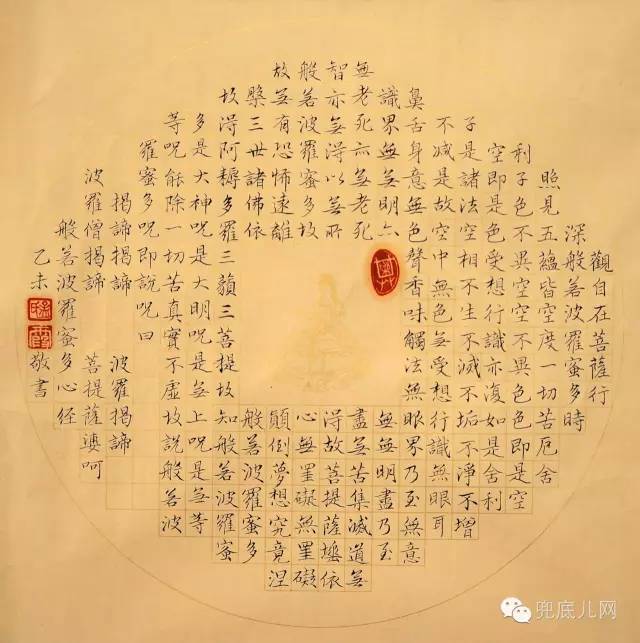 觀自在菩薩行
深般若波羅蜜多時
照見五蘊皆空度一切苦厄舍
利子色不異空空不異色色即是空
空即是色受想行識亦復如是舍利
子是諸法空相不生不滅不垢不淨不增
不減是故空中無色無受想行識無眼耳
鼻舌身意無色聲香味觸法無眼界乃至無意
識界無無明亦無無明盡乃至
無老死亦無老死盡無苦集滅道無
智亦無得以無所得故菩提薩埵依
般若波羅蜜多故心無罣礙無罣礙
故無有恐怖遠離顛倒夢想究竟涅
槃三世諸佛依般若波羅蜜多
故得阿耨多羅三藐三菩提故知般若波羅蜜
多是大神呪是大明呪是無上呪是無等
等呪能除一切苦真實不虛故説般若波
羅蜜多呪即説呪曰
揭諦揭諦 波羅揭諦
波羅僧揭諦 菩提薩婆呵
般若波羅蜜多心經
乙未 敬書
兜底儿网